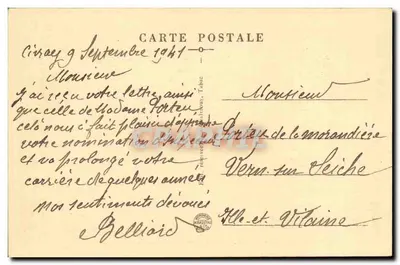 CARTE POSTALE
Civray 9 Septembre 1941
Monsieur
j'ai reçu votre lettre ainsi
que celle de Madame Porteu
cela nous a fait plaisir d'apprendre
votre nomination
et va prolongé votre
carrière de quelques années
nos sentiments dévoués
Belliard
Monsieur
Porteu de la morandière
Vern-sur-Seiche
Ille-et-Vilaine